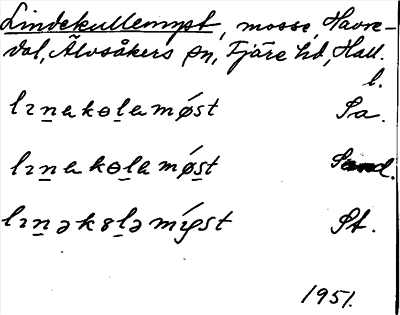 Lindekullemyst, mosse, Havre-
dal, Älvsåkers sn, Fjäre hd, Hall.
l.
lɪn̲ak​ɵl̲amǿst Sa.
lɪn̲akɵl̲amǿs̲t Sand.
lɪn̲əkȣl̲əmýst St.
1951.